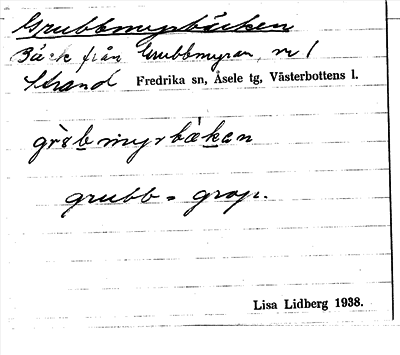 Grubbmyrbäcken
Bäck från Grubbmyran, nr 1
Strand Fredrika sn, Åsele tg, Västerbottens l.
grubb = grop.
Lisa Lidberg 1938.